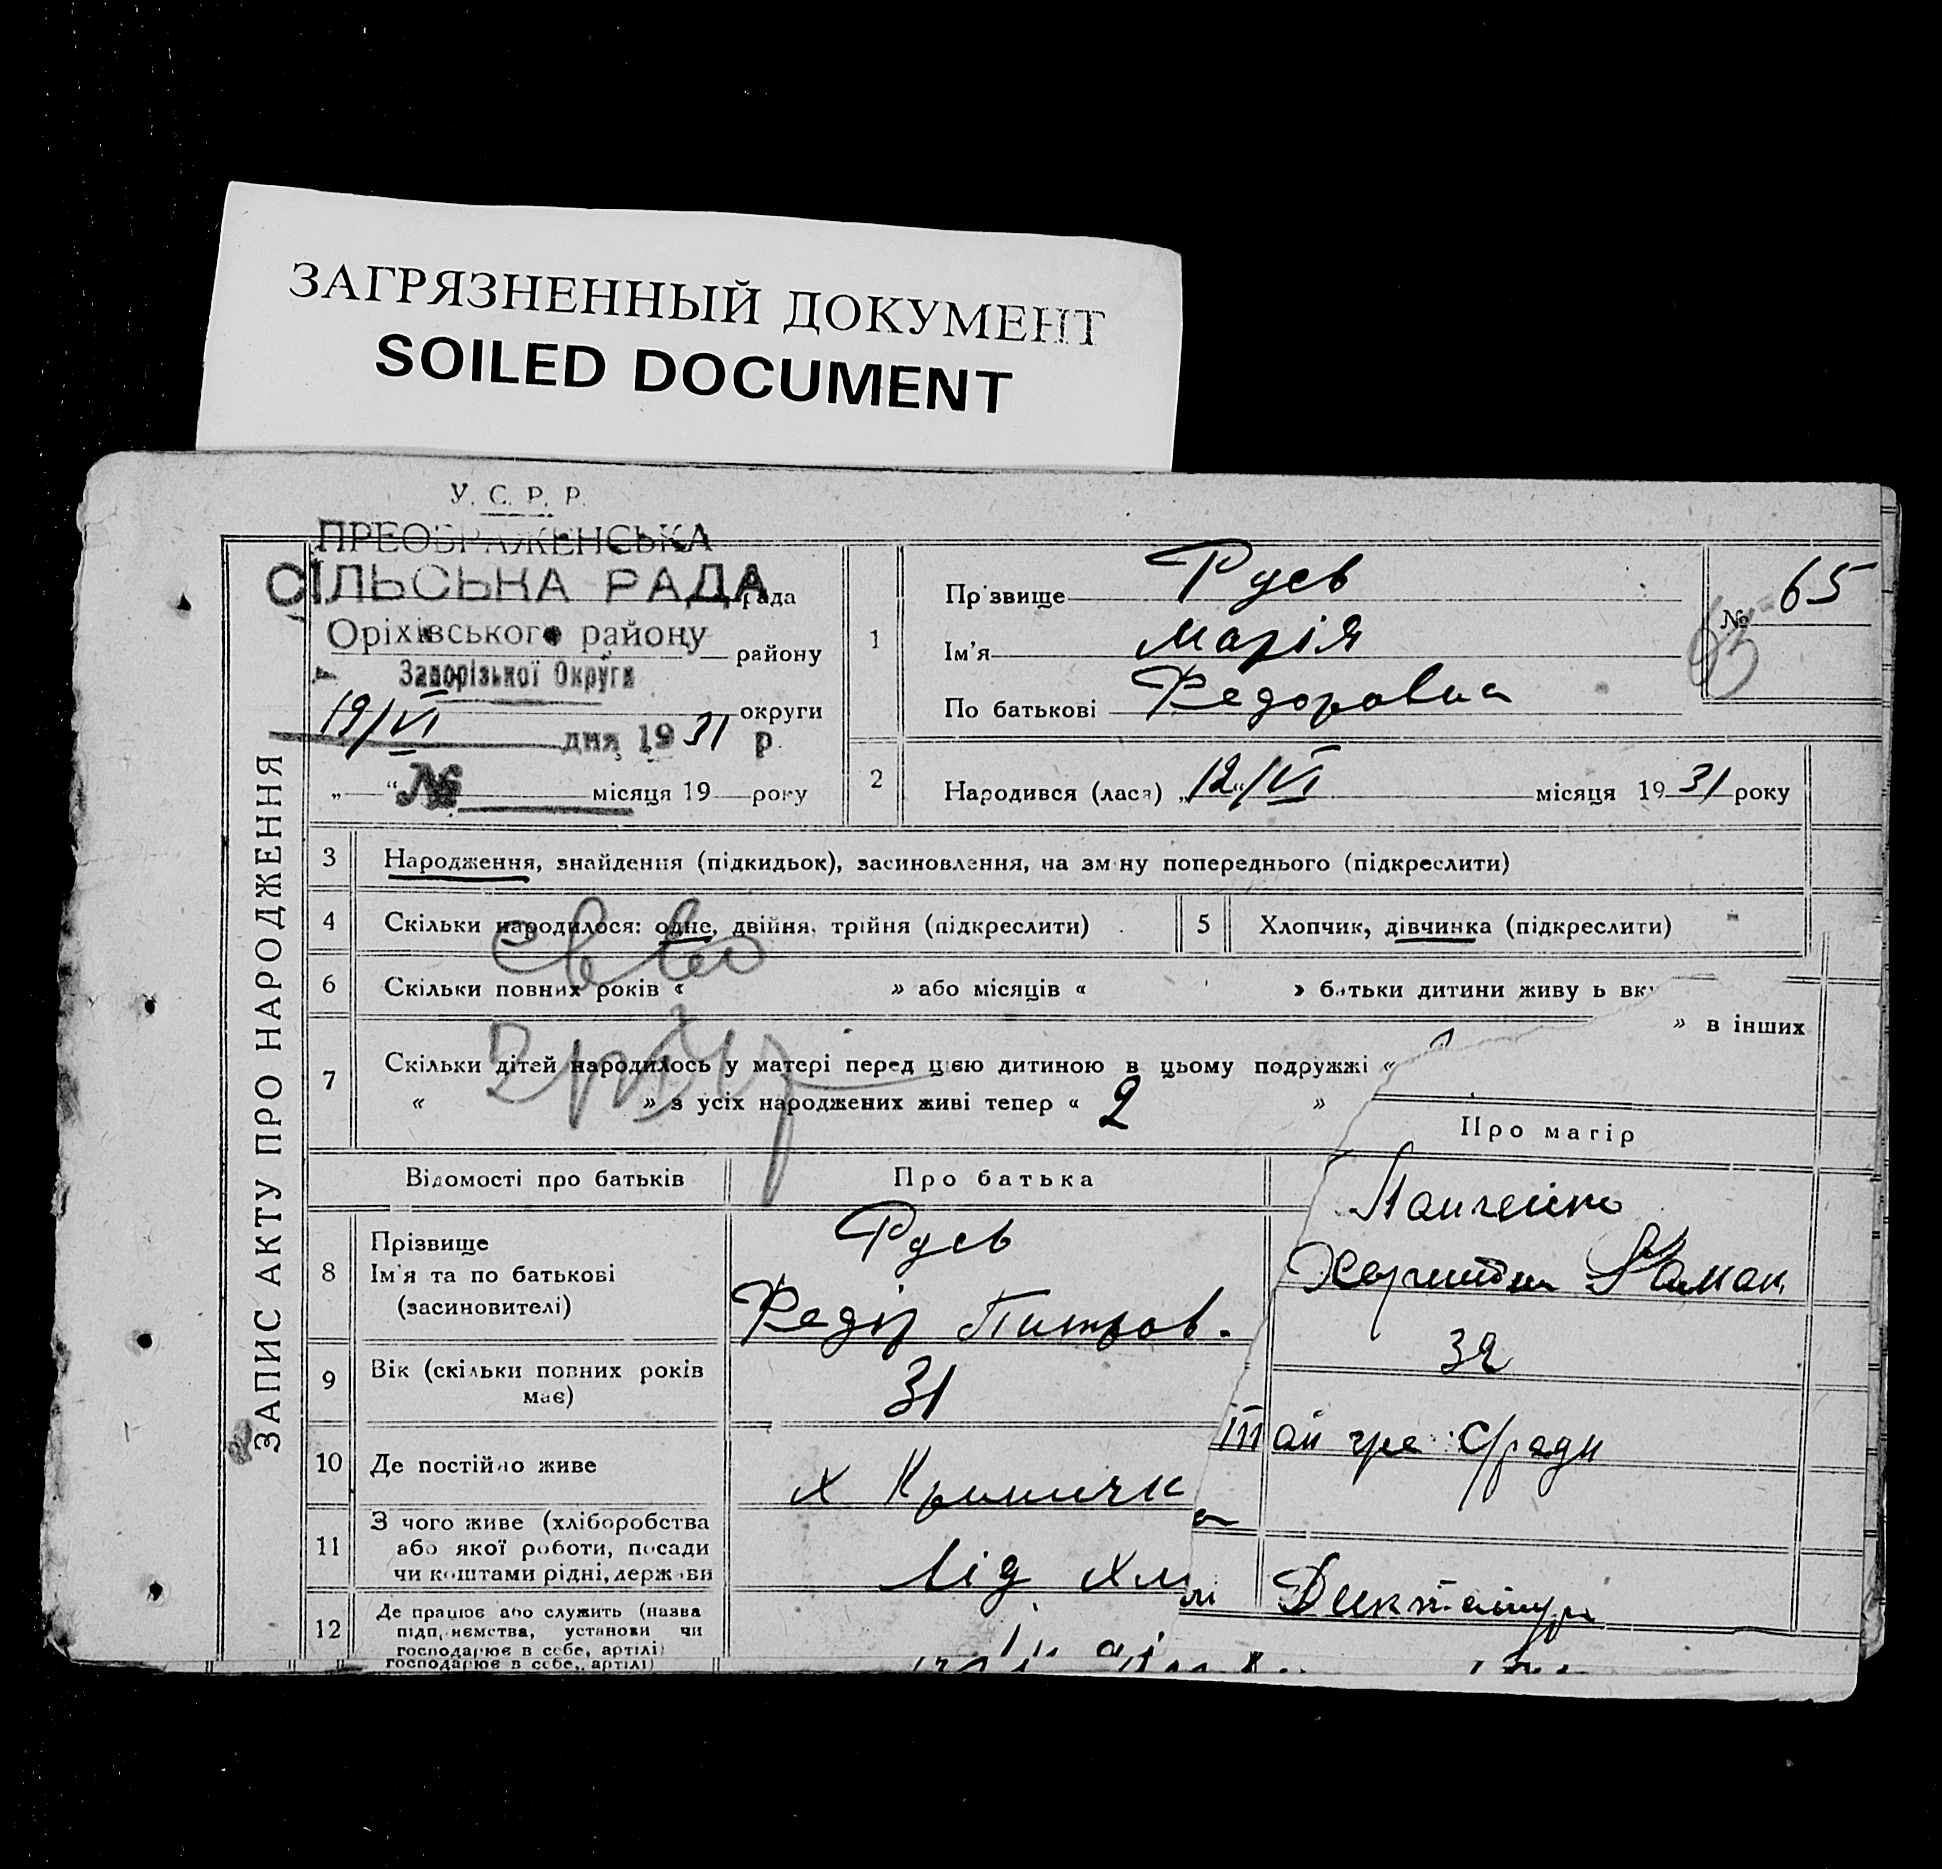 ЗАГРЯЗНЕННЫЙ ДОКУМЕНТ
SOILED DOCUMENT
У. С. Р. Р.
ПРЕОБРАЖЕНСЬКА
СІЛЬСЬКА РАДА
рада
Оріхівського району
району
Запорізької Округи
округи
19/VI дня 1931 р.
„ “ № місяця 19 року
ЗАПИС АКТУ ПРО НАРОДЖЕННЯ
1
Прізвище Русв
Ім’я Марія
По батькові Федоровна
№ 65
63
2
Народився (лася) „12“/VI місяця 1931 року
3 Народження, знайдення (підкидьок), засиновлення, на зміну попереднього (підкреслити)
4 Скільки народилося: одне, двійня, трійня (підкреслити)
5 Хлопчик, дівчинка (підкреслити)
6 Скільки повних років « » або місяців « » батьки дитини живуть вк
» в інших
7 Скільки дітей народилось у матері перед цією дитиною в цьому подружжі «
« » з усіх народжених живі тепер « 2 »
Відомості про батьків Про батька Про матір
8 Прізвище
Ім’я та по батькові
(засиновителі)
Русв
Федір Питров.
9 Вік (скільки повних років
має)
31
32
10 Де постійно живе
х
11 З чого живе (хліборобства
або якої роботи, посади
чи коштами рідні, держави
від
12 Де працює або служить (назва
підприємства, установи чи
господарює в себе, артілі)
господарює в себе, артілі)